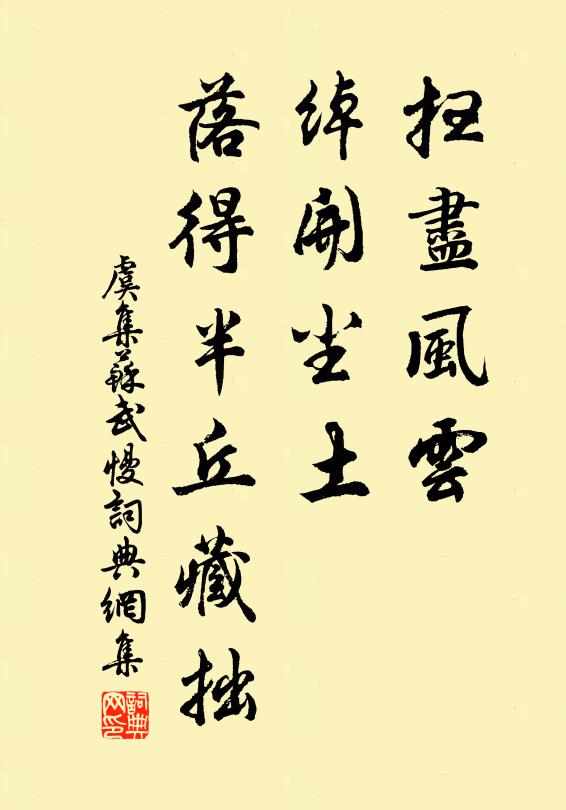 扫盡風雲
綽開塵土
落得半丘藏拙
虞集蘇武慢詞典網集
詞典網印